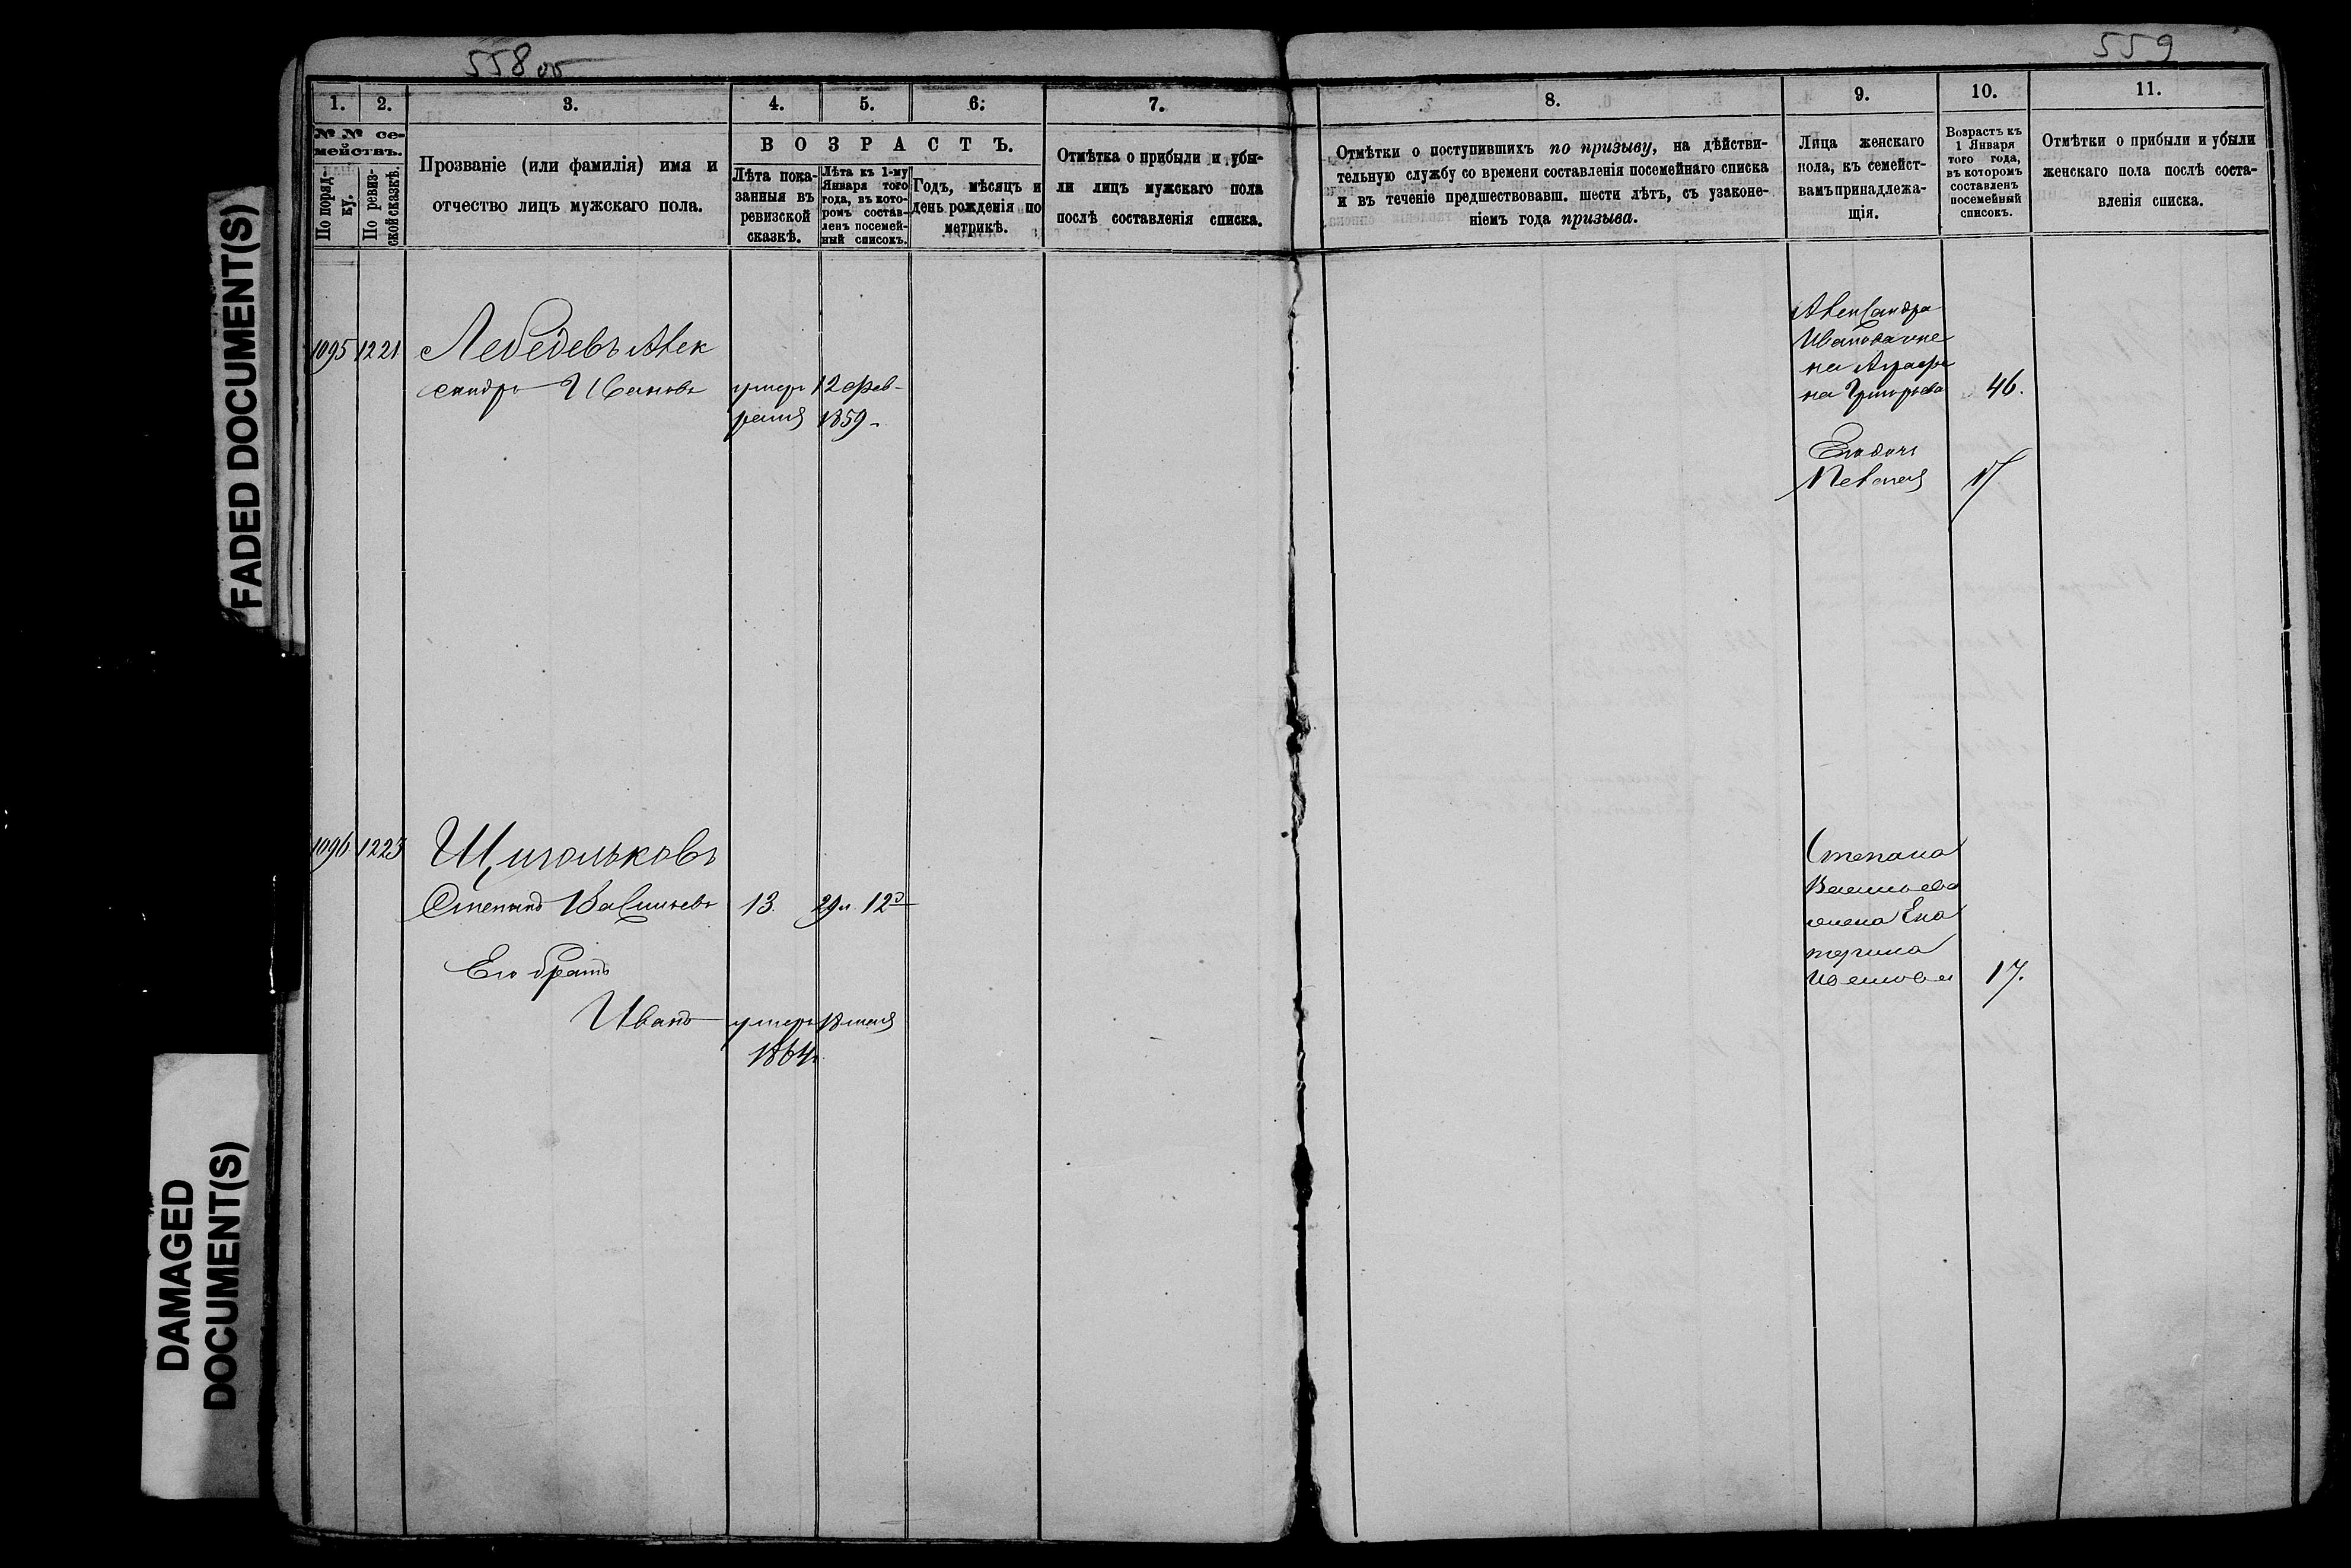 558 об
559
FADED DOCUMENT(S)
DAMAGED
DOCUMENT(S)
1. 2. 3. 4. 5. 6. 7. 8. 9. 10. 11.
№ № се-
мействъ.
По поряд-
ку.
По ревиз-
ской сказкѣ.
Прозваніе (или фамилія) имя и
отчество лицъ мужскаго пола.
ВОЗРАСТЪ.
Лѣта пока-
занныя въ
ревизской
сказкѣ.
Лѣта къ 1-му
Января того
года, въ кото-
ромъ состав-
ленъ посемей-
ный списокъ.
Годъ, мѣсяцъ и
день рожденія по
метрикѣ.
Отмѣтка о прибыли и убы-
ли лицъ мужскаго пола
послѣ составленія списка.
Отмѣтки о поступившихъ по призыву, на дѣйстви-
тельную службу со времени составленія посемейнаго списка
и въ теченіе предшествовавш. шести лѣтъ, съ узаконе-
ніемъ года призыва.
Лица женскаго
пола, къ семейст-
вамъ принадлежа-
щія.
Возрастъ къ
1 Января
того года,
въ которомъ
составленъ
посемейный
списокъ.
Отмѣтки о прибыли и убыли
женскаго пола послѣ соста-
вленія списка.
1095 1221 Лебедевъ Алек
сандръ Ивановъ умеръ 12 фев-
раля 1859
Александра
Иванова же
на Аграфе
на Григорьева 46.
Его дочь
17
1096 1223 Щигольковъ
Степанъ Васильевъ 13. 29 л. 12
Его братъ
Иванъ умеръ 18 мая
1864
Степана
Васильева
жена Ека
терина
Иванова 17.